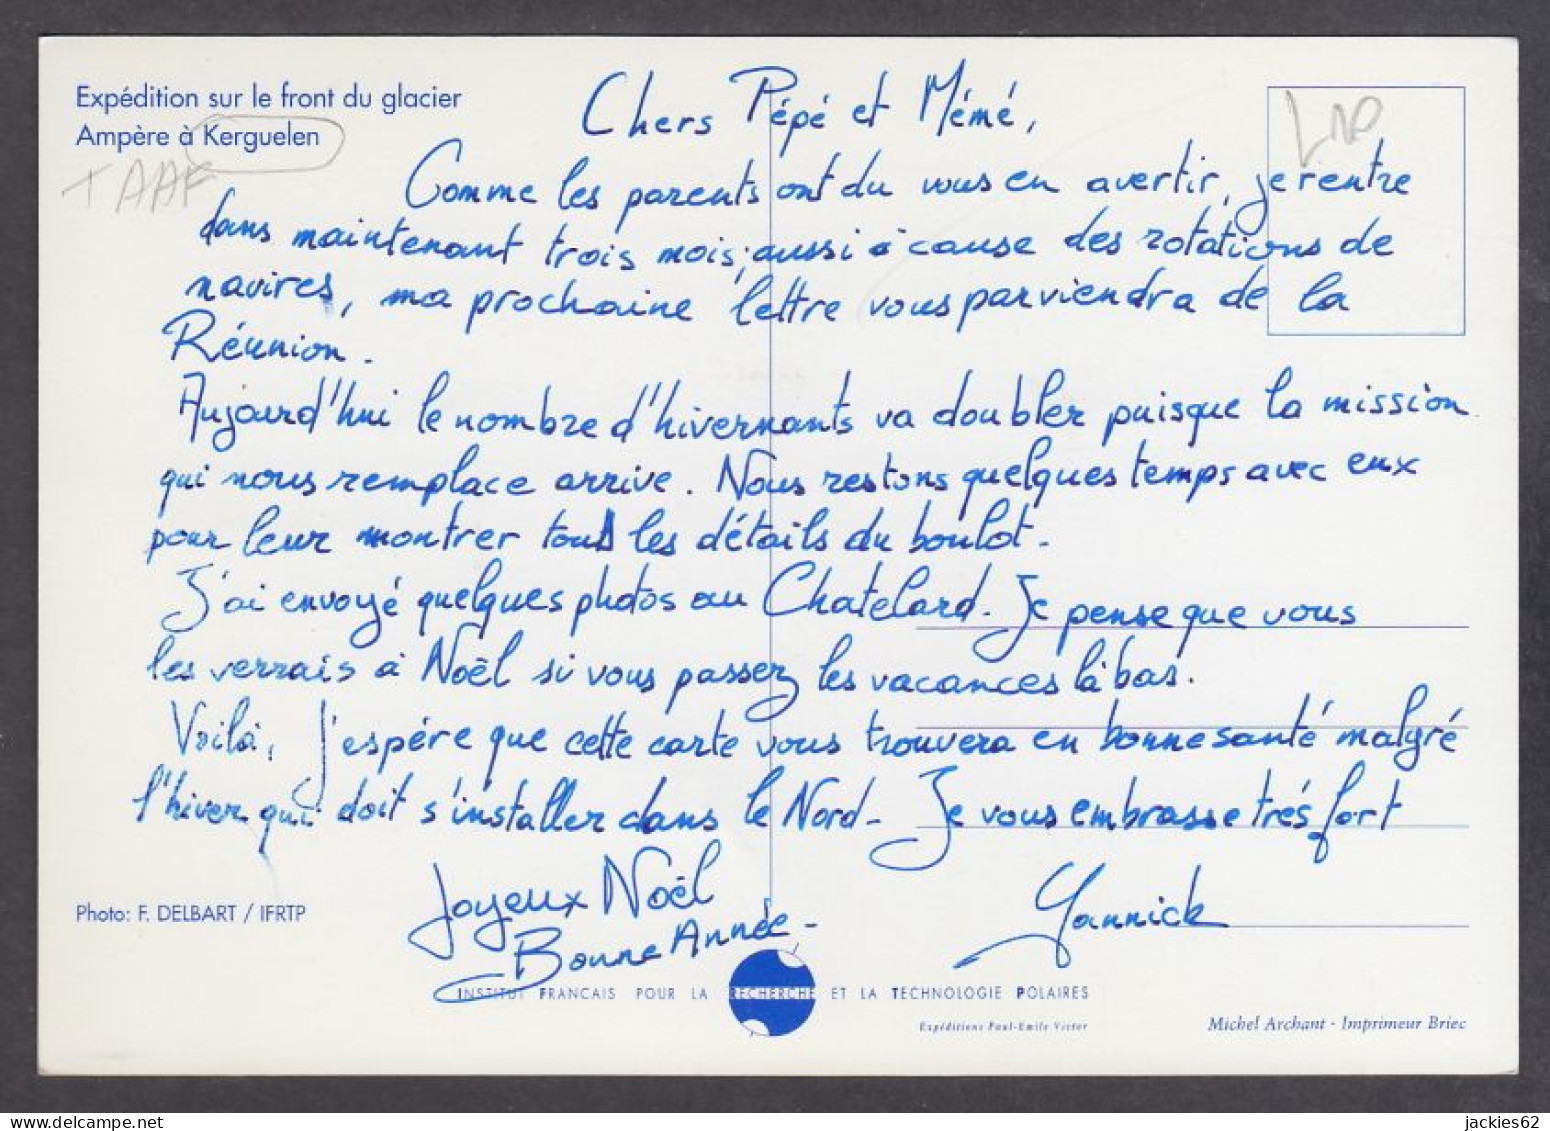 Expédition sur le front du glacier
Ampère à Kerguelen
TAAF
Chers Pépé et Mémé,
Comme les parents ont du vous en avertir, je rentre
dans maintenant trois mois; aussi à cause des rotations de
navires, ma prochaine lettre vous parviendra de la
Réunion.
Aujourd'hui le nombre d'hivernants va doubler puisque la mission
qui nous remplace arrive. Nous restons quelques temps avec eux
pour leur montrer tous les détails du boulot.
J'ai envoyé quelques photos au Chatelard. Je pense que vous
les verrais à Noël si vous passez les vacances là bas.
Voilà, j'espére que cette carte vous trouvera en bonne santé malgré
l'hiver qui doit s'installer dans le Nord. Je vous embrasse trés fort
Joyeux Noël
Bonne Année.
Yannick
Photo: F. DELBART / IFRTP
INSTITUT FRANCAIS POUR LA RECHERCHE ET LA TECHNOLOGIE POLAIRES
Expéditions Paul-Emile Victor
Michel Archant - Imprimeur Briec
jackies62